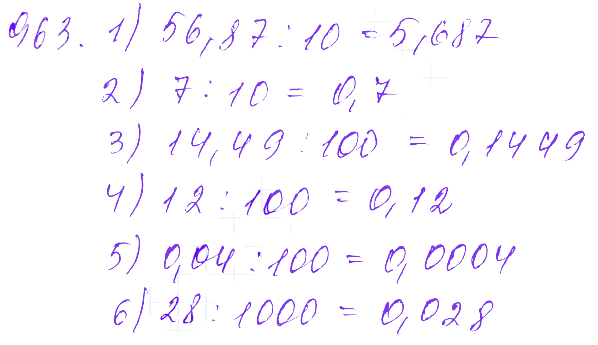 963. 1) 56,87 : 10 = 5,687
2) 7 : 10 = 0,7
3) 14,49 : 100 = 0,1449
4) 12 : 100 = 0,12
5) 0,04 : 100 = 0,0004
6) 28 : 1000 = 0,028